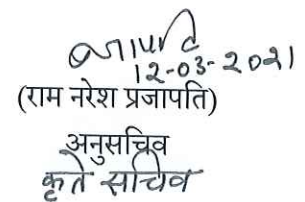 12-03-2021
(राम नरेश प्रजापति)
अनुसचिव
कृते सचिव